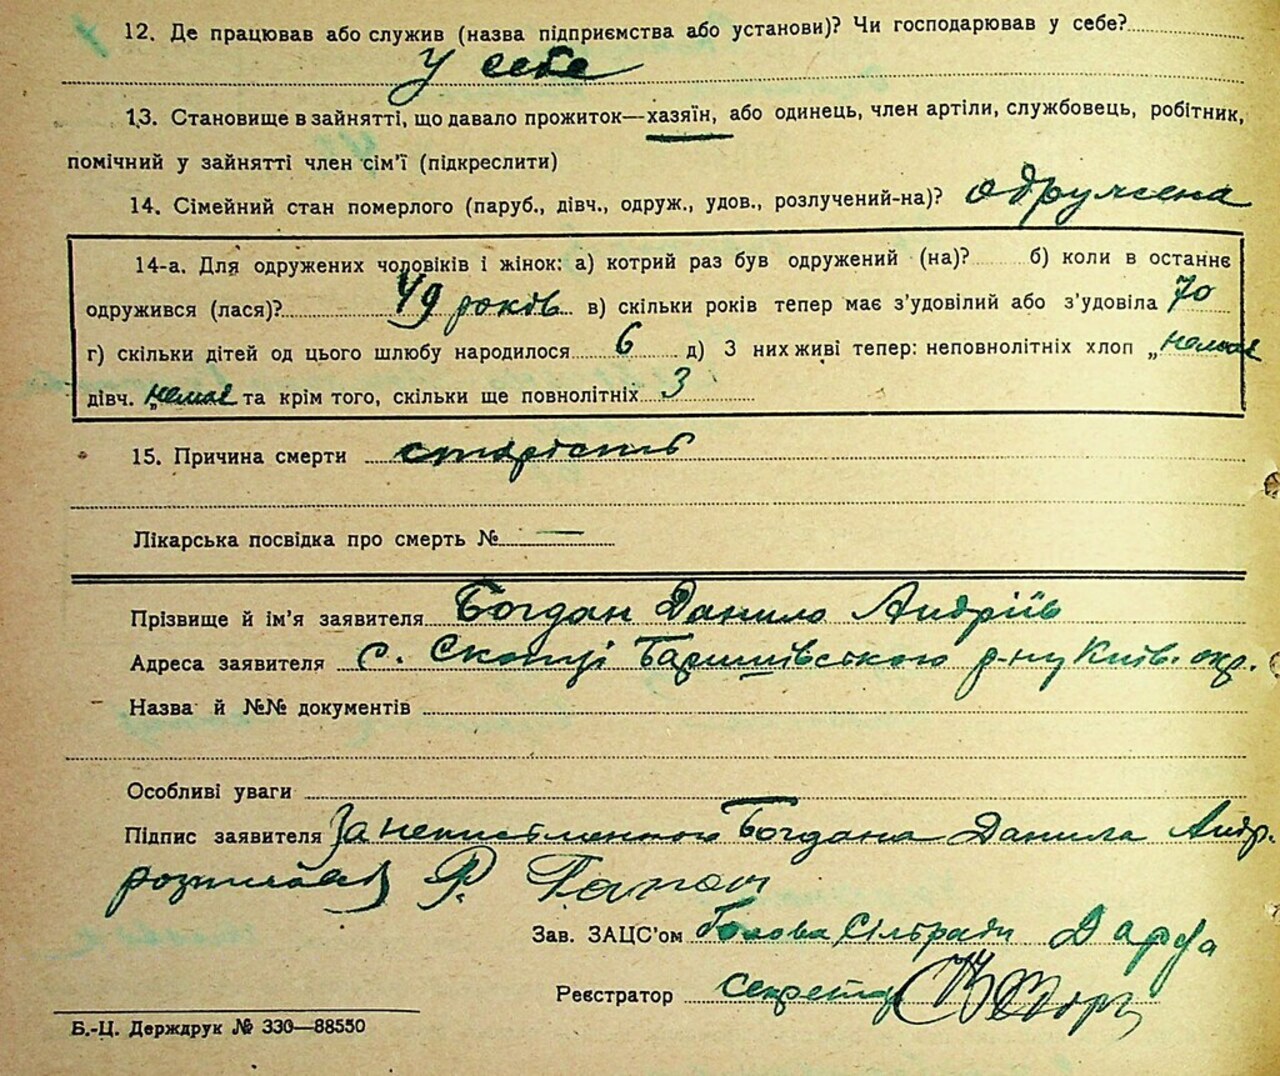 12. Де працював або служив (назва підприємства або установи)? Чи господарював у себе?
У себе
13. Становище в зайнятті, що давало прожиток—хазяїн, або одинець, член артіли, службовець, робітник,
помічний у зайнятті член сім'ї (підкреслити)
14. Сімейний стан померлого (паруб., дівч., одруж., удов., розлучений-на)? одружена
14-а. Для одружених чоловіків і жінок: а) котрий раз був одружений (на)? б) коли в останнє
одружився (лася)? 49 років в) скільки років тепер має з'удовілий або з'удовіла 70
г) скільки дітей од цього шлюбу народилося 6 д) З них живі тепер: неповнолітніх хлоп „немає
дівч. „немає та крім того, скільки ще повнолітніх 3
15. Причина смерти старість
Лікарська посвідка про смерть № —
Прізвище й ім'я заявителя Богдан Данило Андріїв
Адреса заявителя с. Скопці Баришівського р-ну Київ. окр.
Назва й №№ документів
Особливі уваги
Підпис заявителя За неписьменного Богдана Данила Андр.
розписався Р. Гапон
Зав. ЗАЦС'ом Голова Сільради
Реєстратор секретар
Б.-Ц. Держдрук № 330—88550